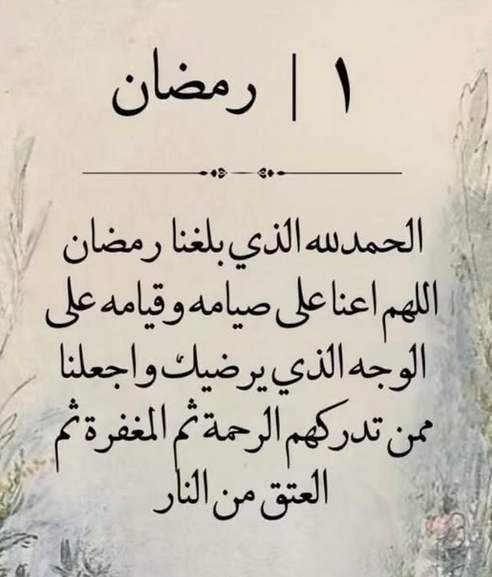 ١ | رمضان
الحمدلله الذي بلغنا رمضان
اللهم اعنا على صيامه وقيامه على
الوجه الذي يرضيك واجعلنا
ممن تدركهم الرحمة ثم المغفرة ثم
العتق من النار